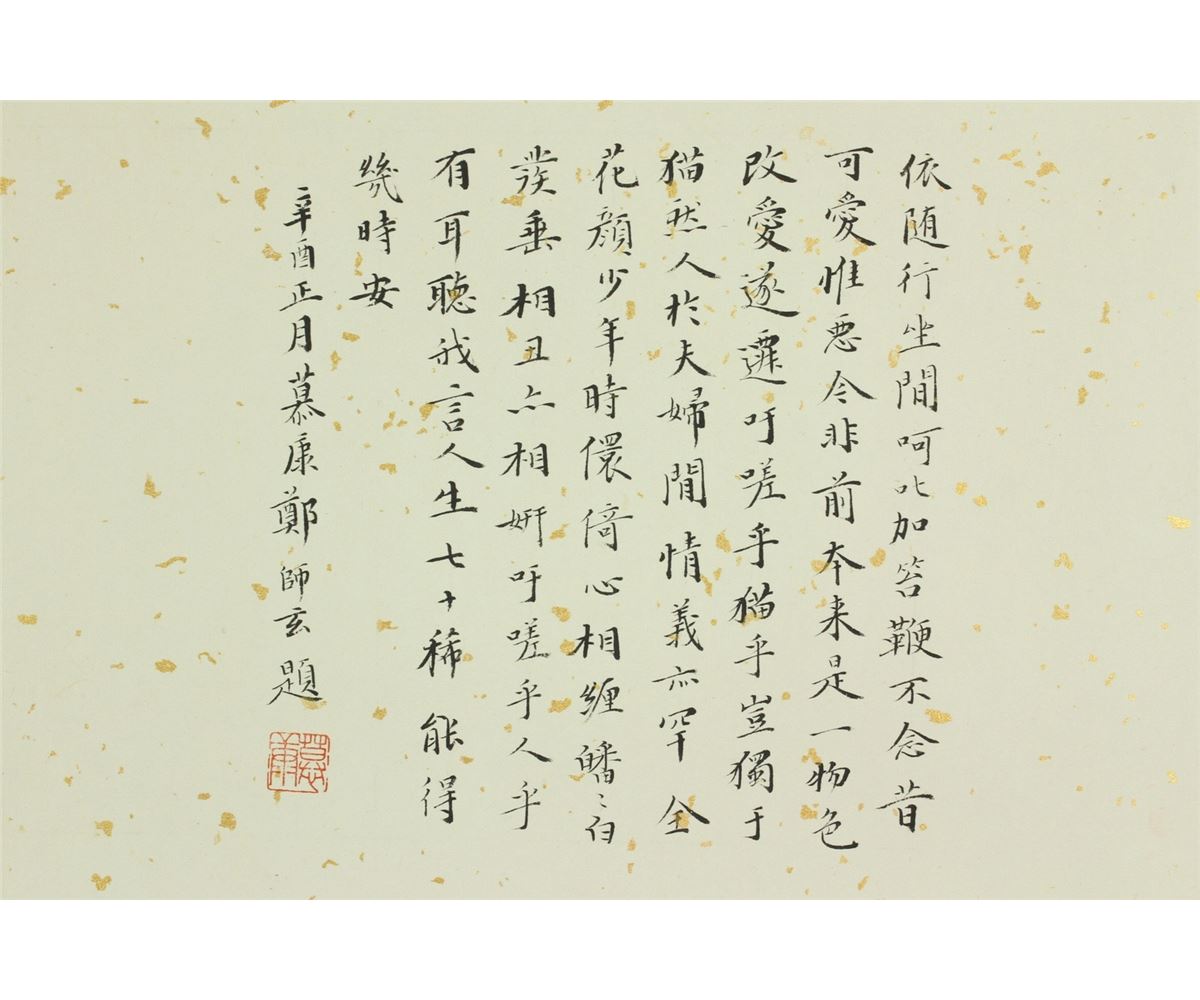 依随行坐間呵叱加笞鞭不念昔
可愛惟悪今非前本来是一物色
改愛遂遷吁嗟乎猫乎豈獨于
猫然人於夫婦間情義亦罕全
花顔少年時儇倚心相纏皤〻白
髮垂相丑亦相妍吁嗟乎人乎
有耳聴我言人生七十稀能得
幾時安
辛酉正月慕康鄭師玄題
慕康